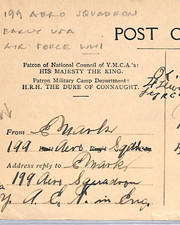 199 AERO SQUADRON
EARLY USA
AIR FORCE WW1
POST O
Patron of National Council of Y.M.C.A's:
HIS MAJESTY THE KING.
Patron Military Camp Department:
H.R.H. THE DUKE OF CONNAUGHT.
From E Mark
199 Aero Sqdn
Address reply to E Mark
199 Aero Squadron
A. in Eng